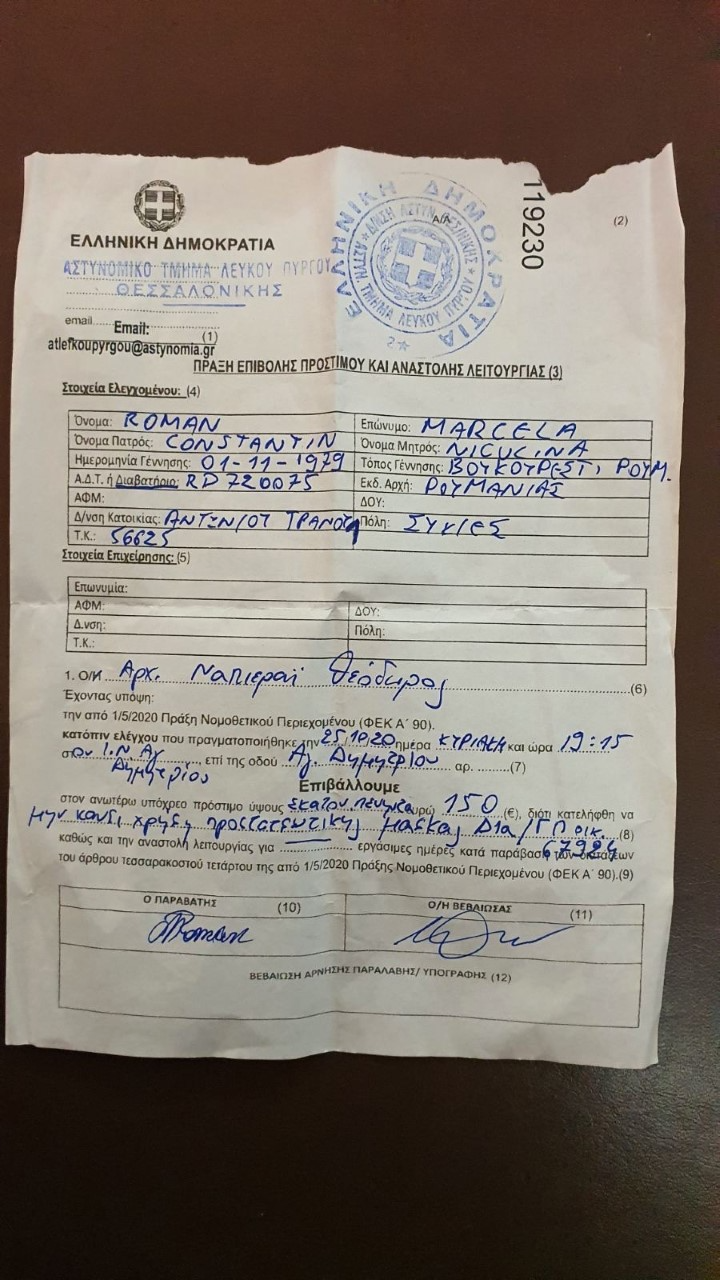 119230
(2)
Α/Α
ΕΛΛΗΝΙΚΗ ΔΗΜΟΚΡΑΤΙΑ
ΑΣΤΥΝ. ΤΜΗΜΑ ΛΕΥΚΟΥ ΠΥΡΓΟΥ
ΕΛΛΗΝΙΚΗ ΔΗΜΟΚΡΑΤΙΑ
ΑΣΤΥΝΟΜΙΚΟ ΤΜΗΜΑ ΛΕΥΚΟΥ ΠΥΡΓΟΥ
ΘΕΣΣΑΛΟΝΙΚΗΣ
email
Email:
(1)
atlefkoupyrgou@astynomia.gr
ΠΡΑΞΗ ΕΠΙΒΟΛΗΣ ΠΡΟΣΤΙΜΟΥ ΚΑΙ ΑΝΑΣΤΟΛΗΣ ΛΕΙΤΟΥΡΓΙΑΣ (3)
Στοιχεία Ελεγχομένου: (4)
Όνομα: ROMAN Επώνυμο: MARCELA
Όνομα Πατρός: CONSTANTIN Όνομα Μητρός: NICULINA
Ημερομηνία Γέννησης: 01-11-1979 Τόπος Γέννησης: ΒΟΥΚΟΥΡΕΣΤΙ, ΡΟΥΜ.
Α.Δ.Τ. ή Διαβατήριο: RD 720075 Εκδ. Αρχή: ΡΟΥΜΑΝΙΑΣ
ΑΦΜ: ΔΟΥ:
Δ/νση Κατοικίας: Πόλη: ΣΥΚΙΕΣ
Τ.Κ.: 56625
Στοιχεία Επιχείρησης: (5)
Επωνυμία:
ΑΦΜ: ΔΟΥ:
Δ.νση: Πόλη:
Τ.Κ.:
1. Ο/Η Αρχ. Θεόδωρος (6)
Έχοντας υπόψη:
την από 1/5/2020 Πράξη Νομοθετικού Περιεχομένου (ΦΕΚ Α΄ 90).
κατόπιν ελέγχου που πραγματοποιήθηκε την 25/10/20 ημέρα ΚΥΡΙΑΚΗ και ώρα 19:15
στ ον Ι.Ν. Αγ. Δημητρίου, επί της οδού Αγ. Δημητρίου αρ. (7)
Επιβάλλουμε
στον ανωτέρω υπόχρεο πρόστιμο ύψους εκατόν πενήντα ευρώ 150 (€), διότι κατελήφθη να
μην κάνει χρήση προστατευτικής μάσκας Δια/ΓΠ οικ. (8)
67924
καθώς και την αναστολή λειτουργίας για εργάσιμες ημέρες κατά παράβαση των διατάξεων
του άρθρου τεσσαρακοστού τετάρτου της από 1/5/2020 Πράξης Νομοθετικού Περιεχομένου (ΦΕΚ Α΄ 90).(9)
Ο ΠΑΡΑΒΑΤΗΣ (10) Ο/Η ΒΕΒΑΙΩΣΑΣ (11)
Roman
ΒΕΒΑΙΩΣΗ ΑΡΝΗΣΗΣ ΠΑΡΑΛΑΒΗΣ/ ΥΠΟΓΡΑΦΗΣ (12)